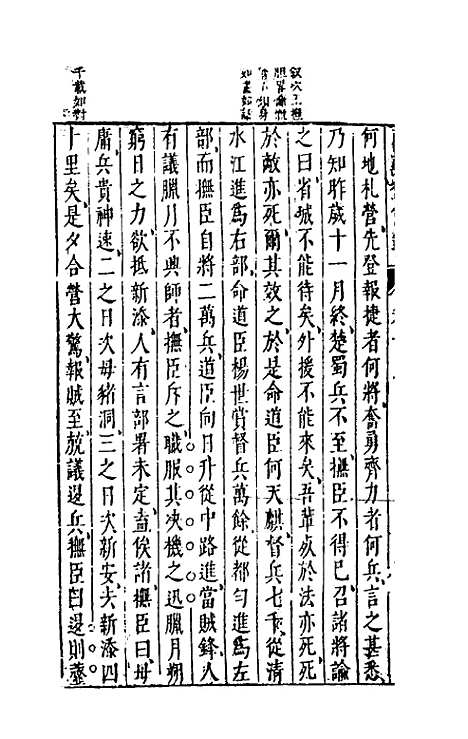 何地札營先登報捷者何將奮勇齊力者何兵言之甚悉
乃知昨歲十一月終楚蜀兵不至撫臣不得已召諸將諭
之曰省城不能待矣外援不能來矣吾輩死於法亦死死
於敵亦死爾其效之於是命道臣何天麒督兵七千從清
水江進爲右部命道臣楊世賞督兵萬餘從都勻進爲左
部而撫臣自將二萬兵道臣向日升從中路進當賊鋒人
有議臘月不興師者撫臣斥之職服其決機之迅臘月朔
窮日之力欲抵新添人有言部署未定盍俟諸撫臣曰毋
庸兵貴神速二之日次母豬洞三之日次新安去新添四
十里矣是夕合營大驚報賊至兢議退兵撫臣曰退則虀
千載如對